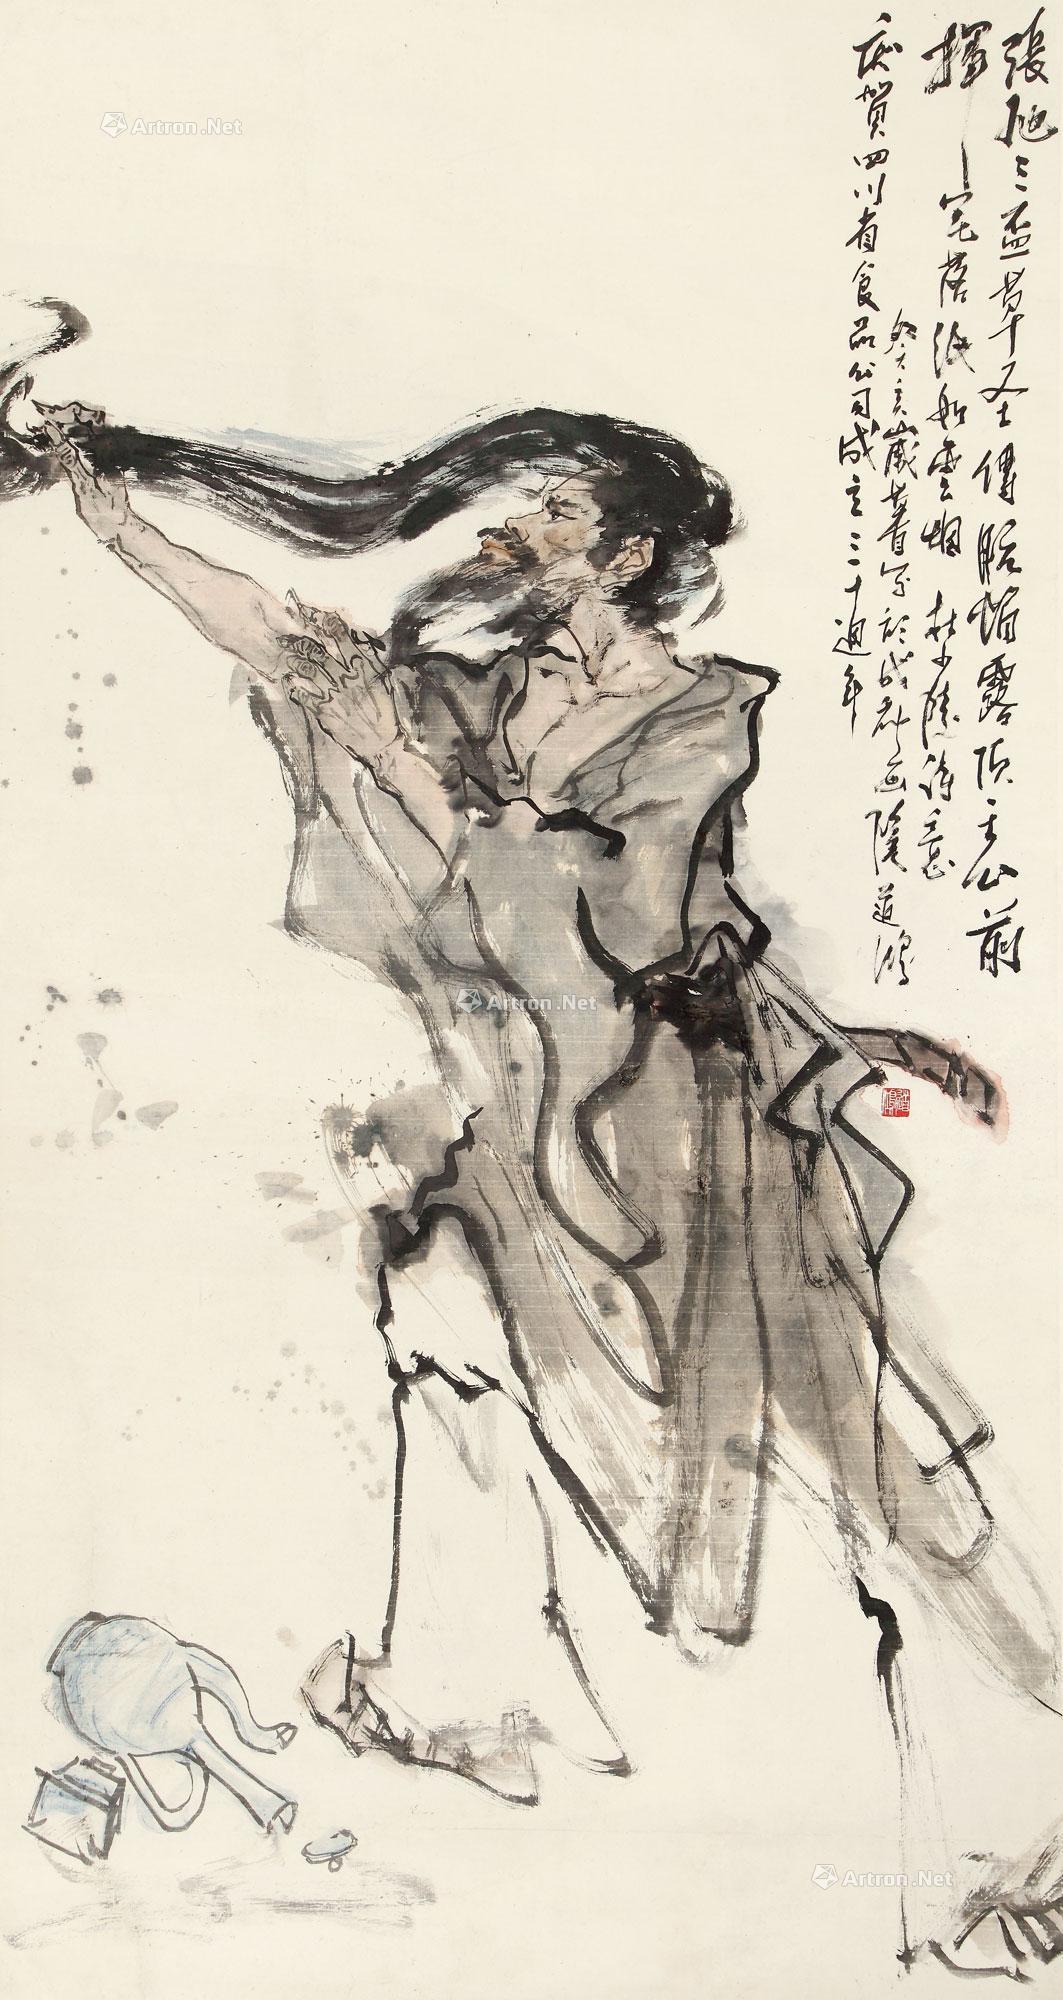 張旭三盃草圣傳脫帽露頂王公前
揮毫落紙如雲烟 杜少陵詩意
癸亥歲写於成都画院道鴻
庆賀四川省食品公司成立三十週年
道鴻
Artron.Net
Artron.Net
Artron.Net